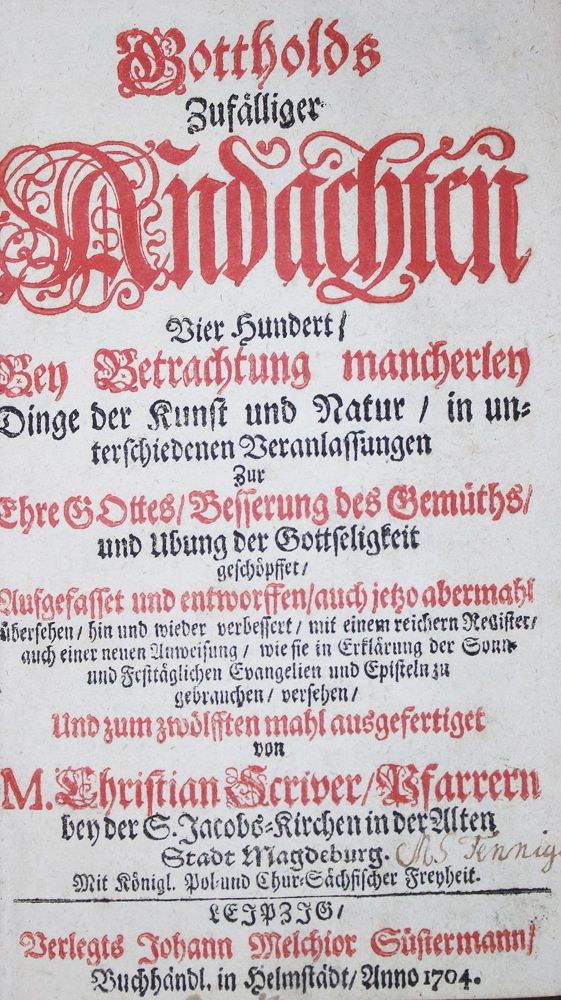 Gottholds
Zufälliger
Andachten
Vier Hundert/
Bey Betrachtung mancherley
Dinge der Kunst und Natur / in un=
terschiedenen Veranlassungen
Zur
Ehre GOttes/ Besserung des Gemüths/
und Ubung der Gottseligkeit
geschöpffet/
Aufgefasset und entworffen/ auch jetzo abermahl
übersehen/ hin und wieder verbessert/ mit einem reichern Register/
auch einer neuen Anweisung / wie sie in Erklärung der Sonn-
und Festtäglichen Evangelien und Episteln zu
gebrauchen/ versehen/
Und zum zwölfften mahl ausgefertiget
von
M. Christian Scriver/ Pfarrern
bey der S. Jacobs=Kirchen in der Alten
Stadt Magdeburg.
Mit Königl. Pol- und Chur-Sächsischer Freyheit.
LEIPZIG/
Verlegts Johann Melchior Süstermann/
Buchhändl. in Helmstädt/ Anno 1704.